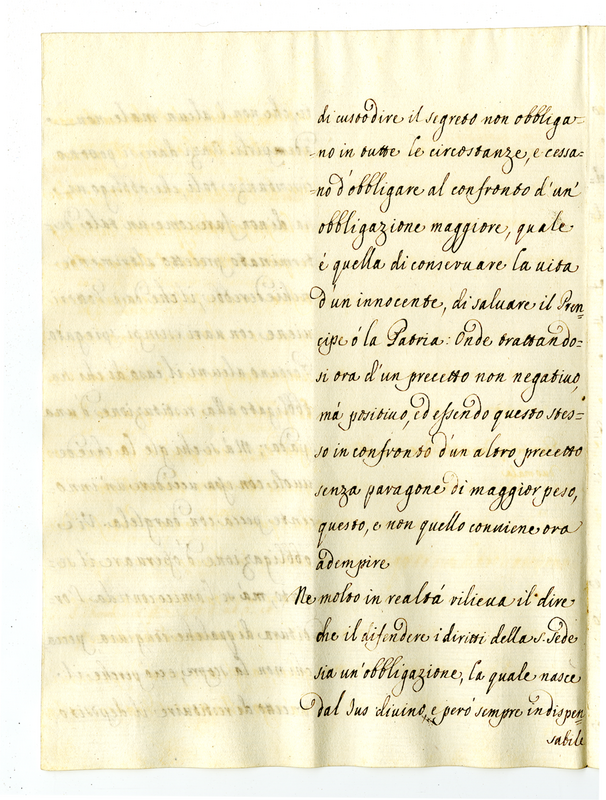 di custodire il segreto non obbliga=
=no in tutte le circostanze, e cessa=
=no d'obbligare al confronto d'un'
obbligazione maggiore, quale
é quella di conservare la vita
d'un innocente, di salvare il Prin=
cipe ó la Patria: Onde trattando=
si ora d'un precetto non negativo,
má positivo, ed essendo questo stes=
so in confronto d'un altro precetto
senza paragone di maggior peso,
questo, e non quello conviene ora
adempire
Ne molto in realtá rilieva il dire
che il difendere i diritti della S. Sede
sia un'obbligazione, la quale nasce
dal Jus divino, e peró sempre indispen=
sabile